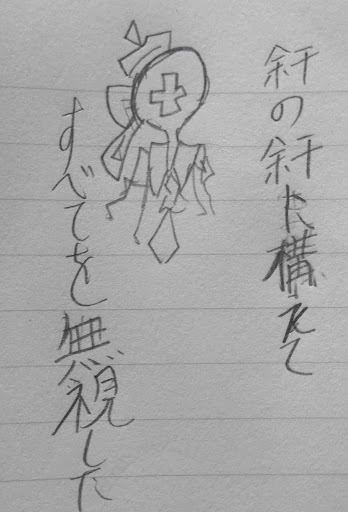 斜の斜に構えて
すべてを無視した